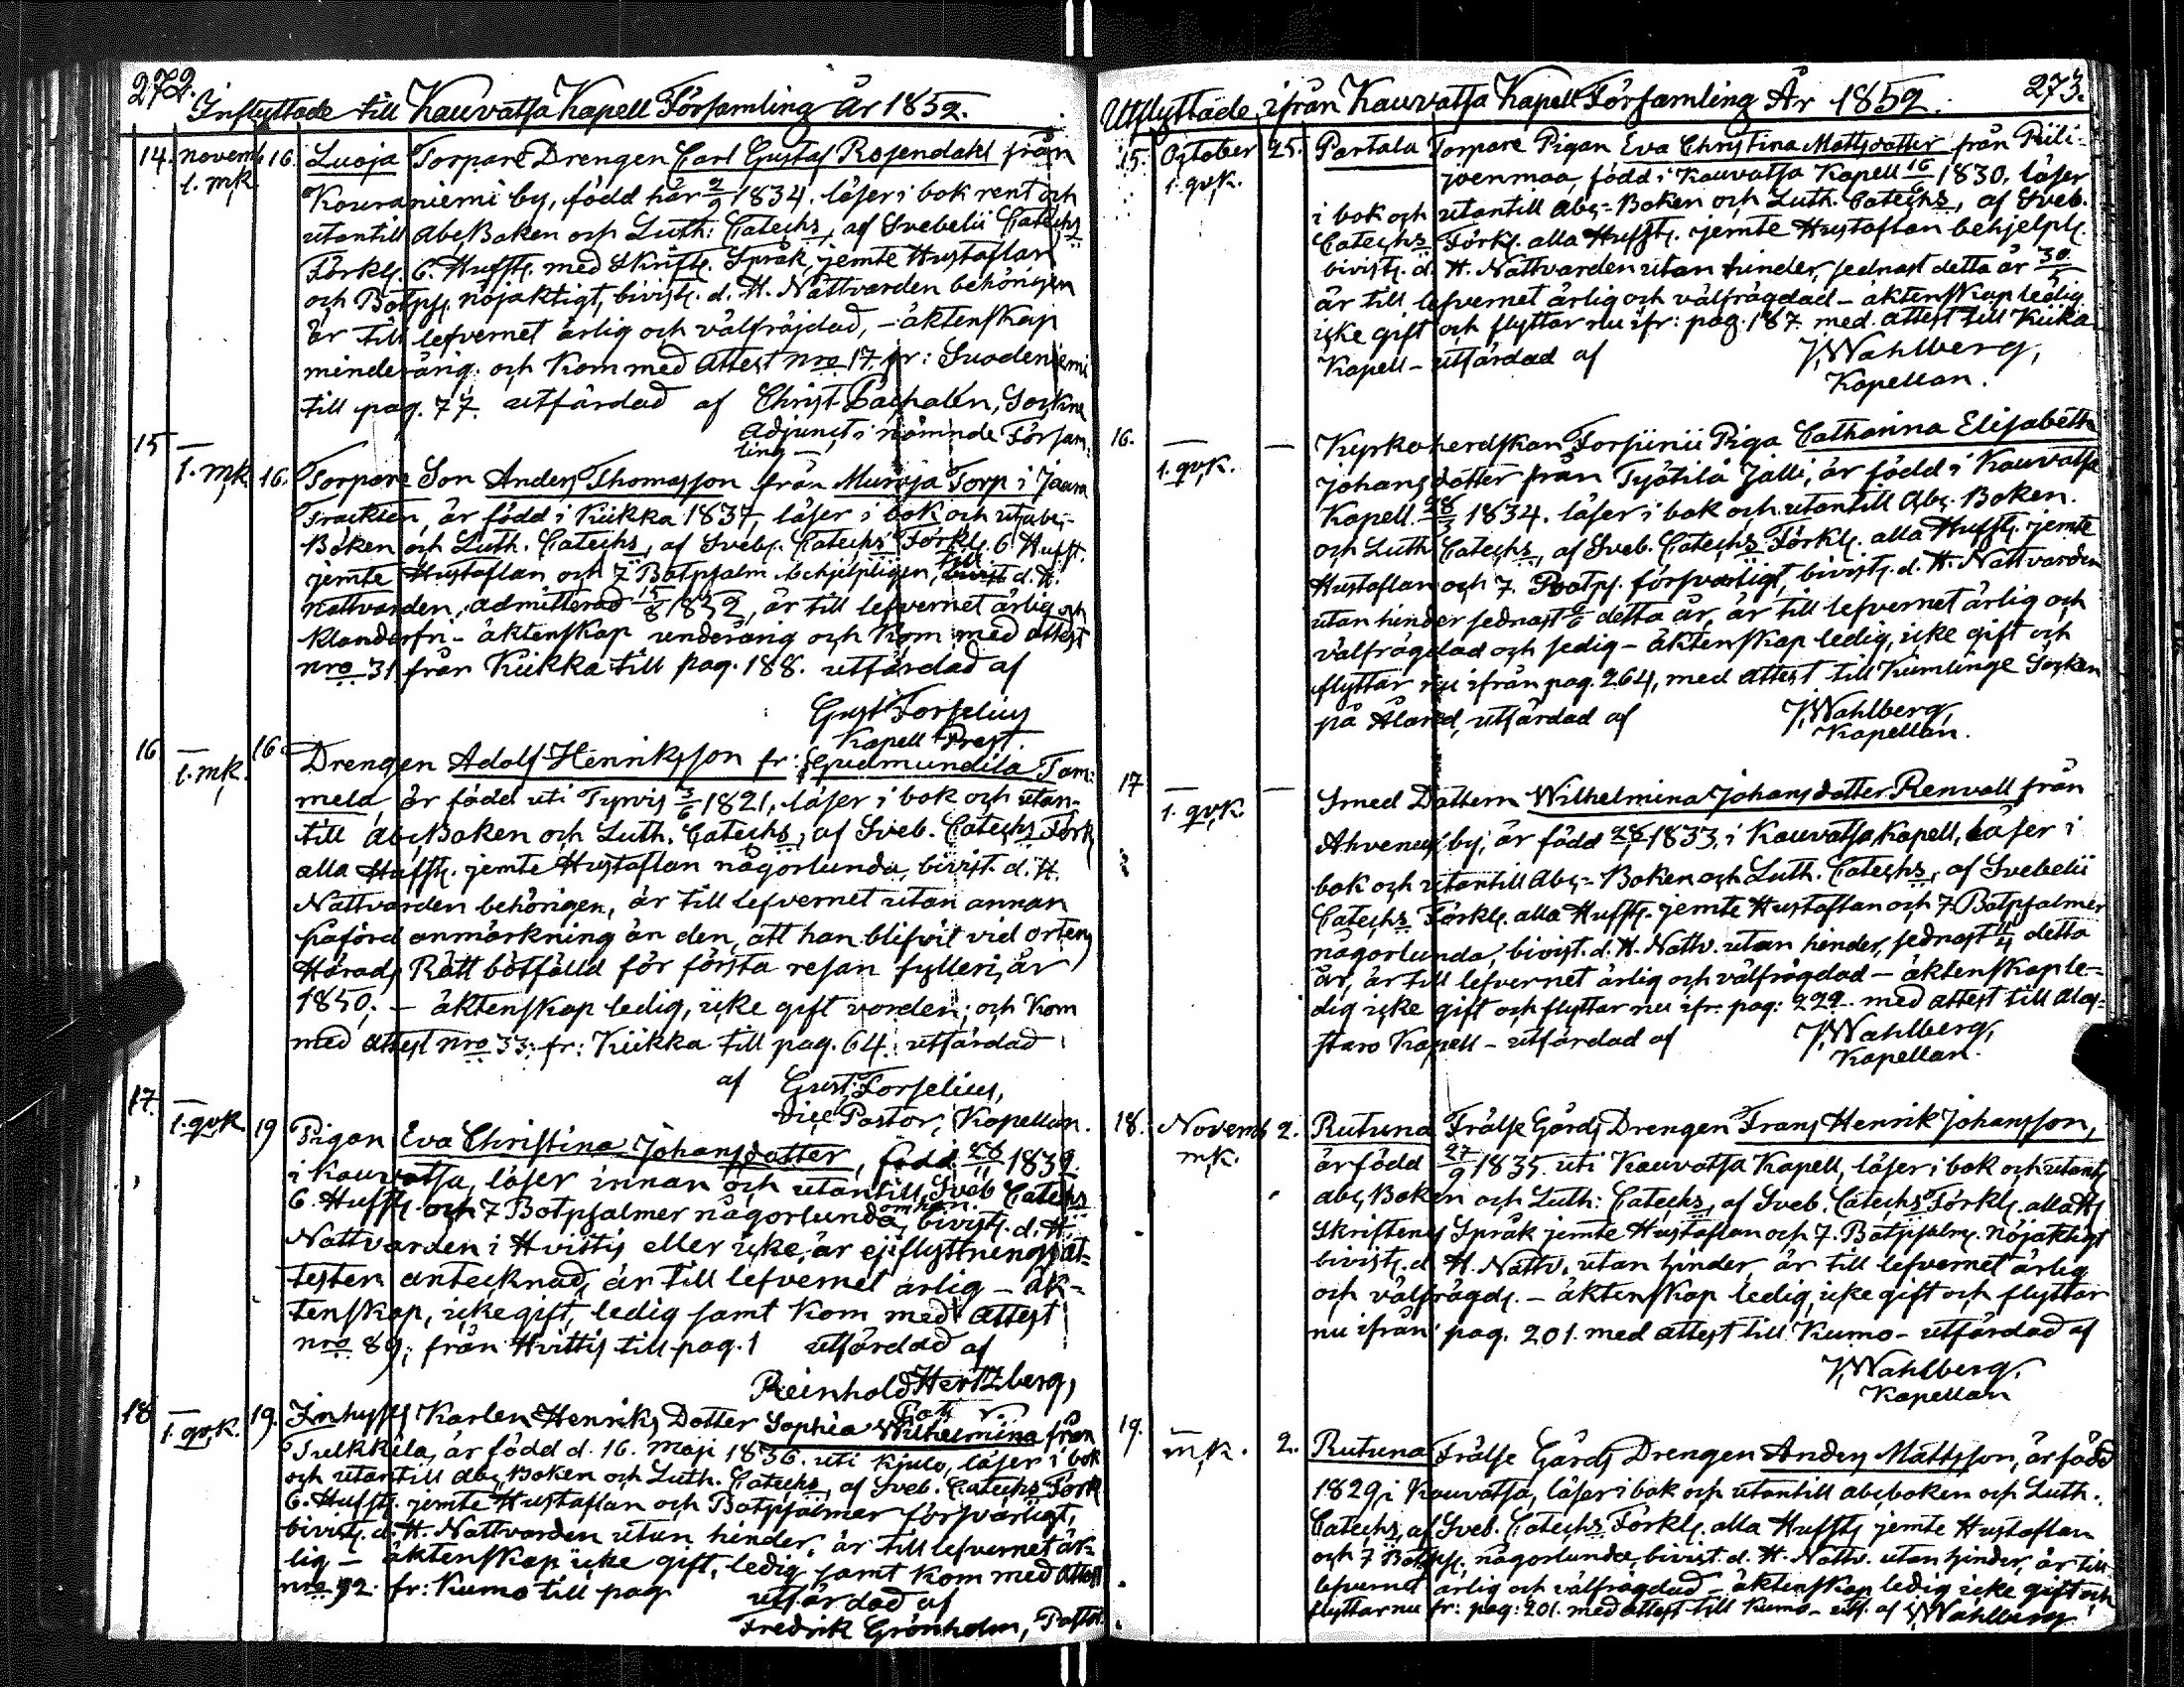 272.
Inflyttade till Kauvatsa Kapell Församling År 1852.
14. novemb 16. Luoja Torpare Drengen Carl Gustaf Rosendahl från
1. mk. Kouraniemi by, född här 2/9 1834. läser i bok rent och
utantill AbcBoken och Luth: Catechs, af Svebelii Catechs
Förkl. 6. Hufst. med Skrift. Språk, jemte Hustaflan
och Botps. nöjaktigt, bivist. d. H. Nattvarden behörigen
är till lefvernet ärlig och välfräjdad, – äktenskap
minderårig. och Kom med Attest nro 17. fr: Suodeniemi
till pag. 77. utfärdad af Christ. Sockne
Adjunct i nämnde Försam-
ling –
15 – 1. mk 16. Torpare Son Anders Thomasson från Muroja Torp i
Trackten, är född i Kiikka 1837, läser i bok och ut abc-
Boken och Luth. Catechs, af Sveb. Catechs Förkl. 6 Hufst.
jemte Hustaflan och 7 Botpsalm behjelpligen, till d. H.
Nattvarden, admitterad 15/8 1852, är till lefvernet ärlig och
klanderfri – äktenskap underårig och Kom med attest
nro 31 från Kiikka till pag. 188. utfärdad af
Gust Forselius
Kapell Prest.
16 – 1. mk. 16. Drengen Adolf Henriksson fr: Gudmundila Tom-
mela, är född uti Tyrvis 3/6 1821, läser i bok och utan-
till AbcBoken och Luth. Catechs, af Sveb. Catechs Förk
alla Hufst. jemte Hustaflan någorlunda, bivist. d. H.
Nattvarden behörigen, är till lefvernet utan annan
påförd anmärkning än den, att han blifvit vid ortens
Härads Rätt bötfälld för första resan fylleri, år
1850; – äktenskap ledig, icke gift vorden; och Kom
med attest nro 33: fr: Kiikka till pag. 64. utfärdad
af Gust. Forselius,
Vice Pastor, Kapellan.
17. – 1. qvk 19 Pigan Eva Christina Johansdotter, född 28/11 1832
i Kauvatsa, läser innan och utantill, Sveb Catechs
6. Hufst. och 7 Botpsalmer någorlunda, om hon bivist. d. H.
Nattvarden i Hvittis eller icke, är ej i flyttningsat-
testen antecknad, är till lefvernet ärlig – äk-
tenskap, icke gift, ledig samt Kom med Attest
nro 89; från Hvittis till pag. 1 utfärdad af
Reinhold Hertzberg,
18 – 1. qvk. 19. Inhyses Karlen Henriks Dotter Sophia Wilhelmina från
Tulkkila, är född d. 16. Maji 1836. uti Kjulo, läser i bok
och utantill Abc Boken och Luth. Catechs, af Sveb. Catechs Förk
6. Hufst. jemte Hustaflan och Botpsalmer försvarligt,
bivist. d. H. Nattvarden utan hinder, är till lefvernet är-
lig – äktenskap icke gift, ledig samt kom med attest
nro 92. fr: Kumo till pag
utfärdad af
Fredrik Grönholm, Pastor.
273.
Utflyttade ifrån Kauvatsa Kapell Församling År 1852.
15. October 25. Partala Torpare Pigan Eva Christina Mattsdotter från Piili-
1. qvk. joenmaa, född i Kauvatsa Kapell 16/6 1830. läser
i bok och utantill Abc-Boken och Luth. Catechs, af Sveb.
Catechs Förkl. alla Hufst. jemte Hustaflan behjelpl.
bivist. d. H. Nattvarden utan hinder, sednast detta år 30/5
är till lefvernet ärlig och välfrägdad – äktenskap ledig
icke gift och flyttar nu ifr: pag. 187. med attest till Kiika
Kapell – utfärdad af J. Wahlberg,
Kapellan.
16. – 1. qvk. – Kyrkoherdskan Forsiinii Piga Catharina Elisabeth
Johansdotter från Työtilä Jalli, är född i Kauvatsa
Kapell. 28/3 1834. läser i bok och utantill Abc. Boken.
och Luth Catechs, af Sveb. Catechs Förkl. alla Hufst. jemte
Hustaflan och 7. Botps. försvarligt, bivist. d. H. Nattvarden
utan hinder sednast detta år, är till lefvernet ärlig och
välfrägdad och sedig – äktenskap ledig, icke gift och
flyttar nu ifrån pag. 264, med attest till Kumlinge Socken
på Åland, utfärdad af J. Wahlberg,
Kapellan.
17 – 1. qvk. – Smed Dottern Wilhelmina Johansdotter Renvall från
Ahvenus by, är född 1833. i Kauvatsa Kapell, läser i
bok och utantill Abc-Boken och Luth. Catechs, af Svebelii
Catechs Förkl. alla Hufst. jemte Hustaflan och 7. Botpsalmer
någorlunda, bivist. d. H. Nattv. utan hinder, sednast detta
år, är till lefvernet ärlig och välfrägdad – äktenskap le-
dig icke gift och flyttar nu ifr. pag: 222. med attest till Alas-
taro Kapell – utfärdad af J. Wahlberg,
Kapellan.
18. Novemb 2. Rutuna Frälse Gårds Drengen Frans Henrik Johansson,
mk. är född 27/9 1835. uti Kauvatsa Kapell, läser i bok och utant
abc, Boken och Luth: Catechs, af Sveb. Catechs Förkl. alla H
Skriftens Språk jemte Hustaflan och 7. Botpsalm. nöjaktigt
bivist. d. H. Nattv. utan hinder, är till lefvernet ärlig
och välfrägd. – äktenskap ledig, icke gift och flyttar
nu ifrån pag. 201. med attest till Kumo – utfärdad af
J. Wahlberg,
Kapellan
19. mk. 2. Rutuna Frälse Gårds Drengen Anders Mattsson, är född
1829 i Kauvatsa, läser i bok och utantill abcboken och Luth.
Catechs, af Sveb. Catechs Förkl. alla Hufst. jemte Hustaflan
och 7 Botps. någorlunda, bivist. d. H. Nattv. utan hinder, är till
lefvernet ärlig och välfrägdad – äktenskap ledig icke gift och
flyttar nu fr: pag: 201. med attest till Kumo – utf. af J. Wahlberg